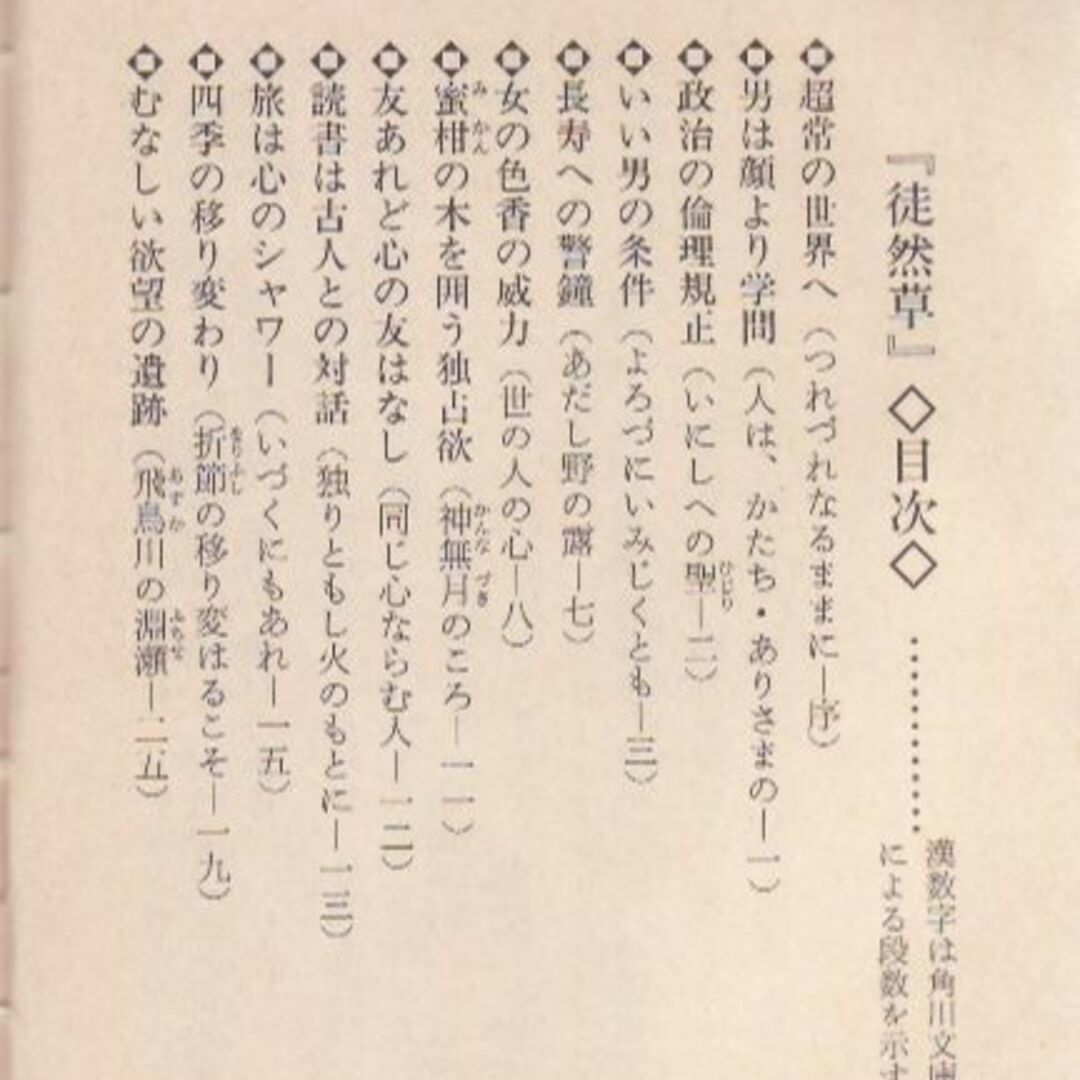 『徒然草』◇目次◇…………
漢数字は角川文庫
による段数を示す
◆超常の世界へ(つれづれなるままに―序)
◆男は顔より学問(人は、かたち・ありさまの―一)
◆政治の倫理規正(いにしへの聖―二)
◆いい男の条件(よろづにいみじくとも―三)
◆長寿への警鐘(あだし野の露―七)
◆女の色香の威力(世の人の心―八)
◆蜜柑の木を囲う独占欲(神無月のころ―一一)
◆友あれど心の友はなし(同じ心ならむ人―一二)
◆読書は古人との対話(独りともし火のもとに―一三)
◆旅は心のシャワー(いづくにもあれ―一五)
◆四季の移り変わり(折節の移り変はるこそ―一九)
◆むなしい欲望の遺跡(飛鳥川の淵瀬―二五)